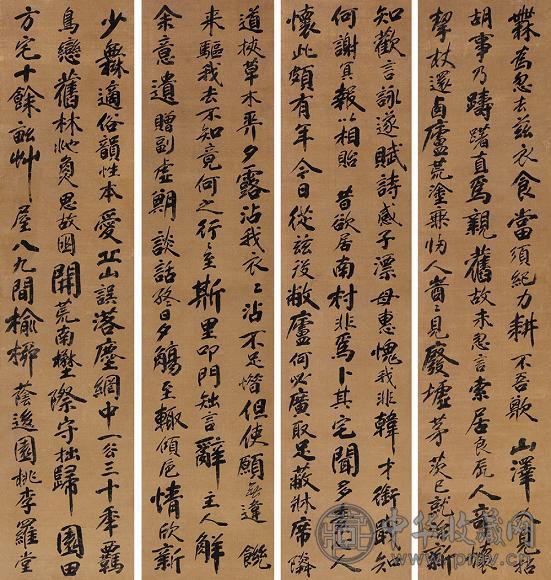 少無適俗韻性本愛丘山誤落塵網中一去三十年羈
鳥戀舊林池魚思故淵開荒南壄際守拙歸園田
方宅十餘畝艸屋八九間榆柳蔭後園桃李羅堂
道狹草木長夕露沾我衣〻沾不足惜但使願無違 饑
來驅我去不知竟何之行〻至斯里叩門拙言辭主人解
余意遺贈副虛期談話終日夕觴至輒傾卮情欣新
知歡言詠遂賦詩感子漂母惠愧我非韓才銜戢知
何謝冥報以相貽 昔欲居南村非為卜其宅聞多素心人
懷此頗有年今日從茲後敝廬何必廣取足蔽牀席隣
無為忽去茲衣食當須紀力耕不吾欺 山澤久見招
胡事乃躊躇直為親舊故未忍言索居良辰入奇懷
挈杖還西廬荒塗無歸人時〻見廢墟茅茨已就治新
中华收藏网